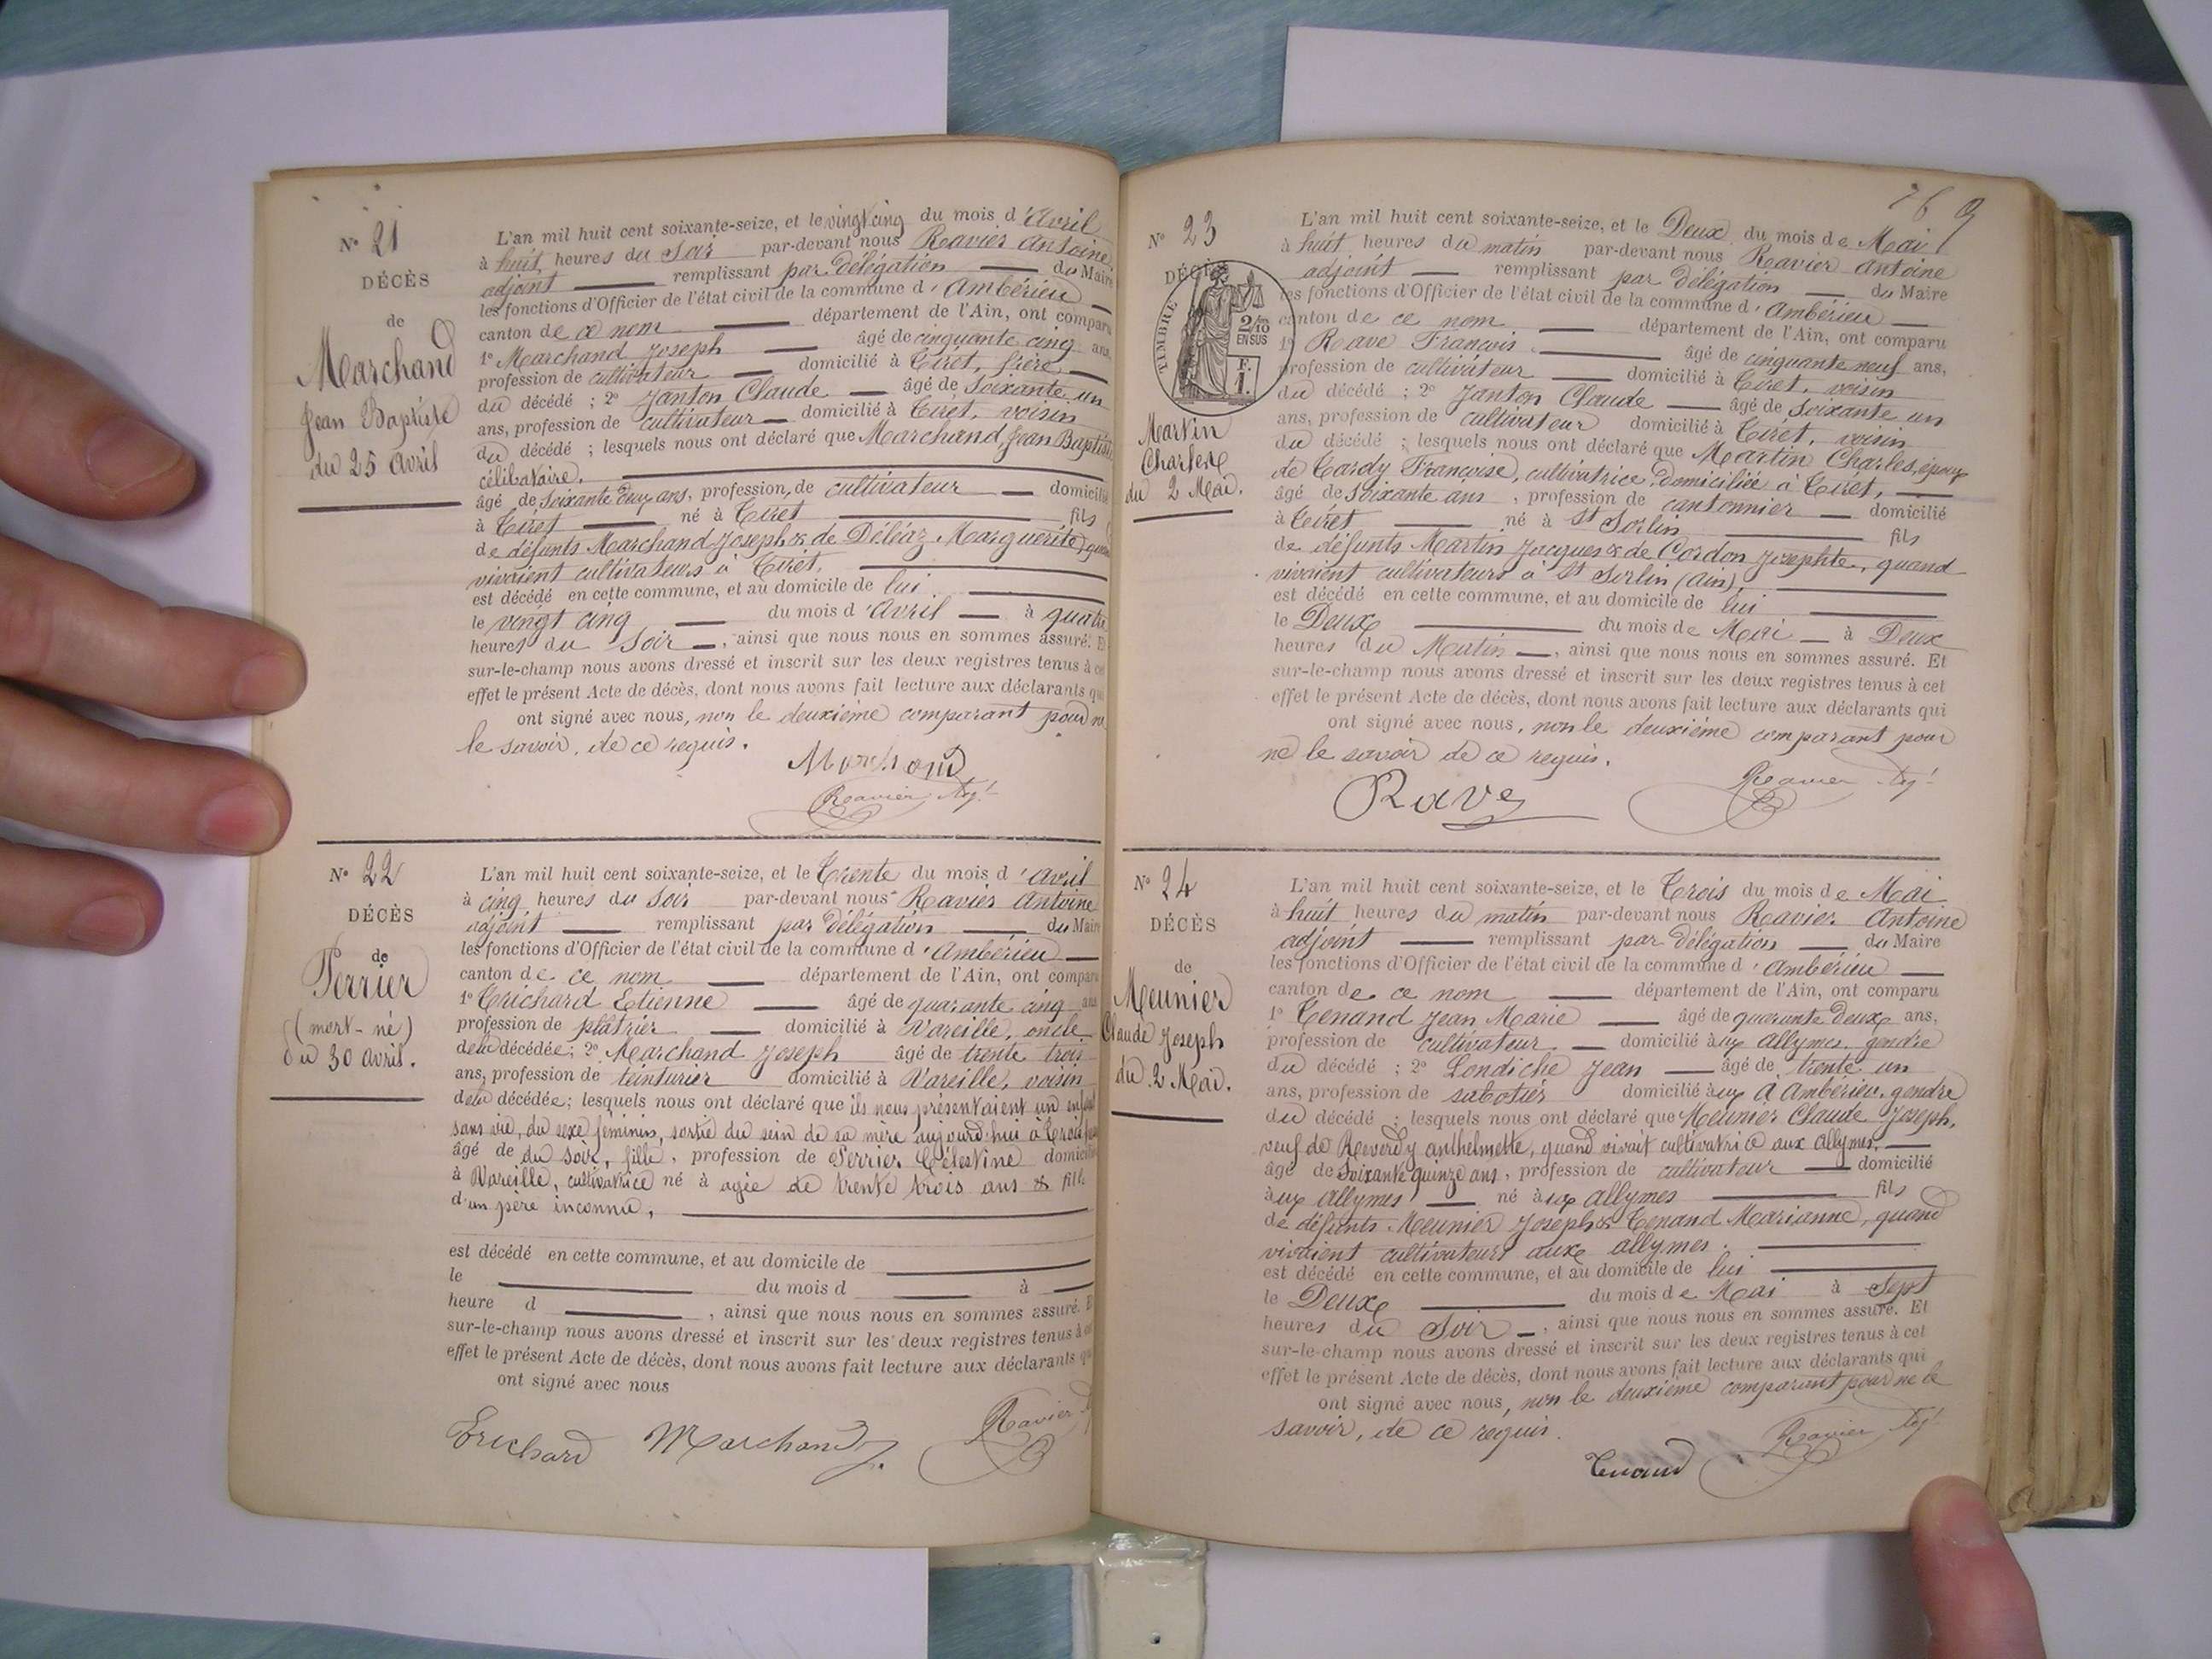 N° 21
DÉCÈS
de
Marchand
Jean Baptiste
du 25 avril
L'an mil huit cent soixante-seize, et le vingt cinq du mois d'Avril
à huit heures du Soir par-devant nous Ravier Antoine
adjoint remplissant par délégation du Maire
les fonctions d'Officier de l'état civil de la commune d'Ambérieu
canton de ce nom département de l'Ain, ont comparu
1° Marchand Joseph âgé de cinquante cinq ans,
profession de cultivateur domicilié à Tiret, frère
du décédé ; 2° Janton Claude âgé de soixante un
ans, profession de cultivateur domicilié à Tiret, voisin
du décédé ; lesquels nous ont déclaré que Marchand Jean Baptiste
célibataire.
âgé de soixante deux ans, profession de cultivateur domicilié
à Tiret né à Tiret fils
de défunts Marchand Joseph & de Déléaz Marguerite, quand
vivaient cultivateurs à Tiret.
est décédé en cette commune, et au domicile de lui
le vingt cinq du mois d'Avril à quatre
heures du Soir, ainsi que nous nous en sommes assuré. Et
sur-le-champ nous avons dressé et inscrit sur les deux registres tenus à cet
effet le présent Acte de décès, dont nous avons fait lecture aux déclarants qui
ont signé avec nous, non le deuxième comparant pour ne
le savoir, de ce requis.
Marchand
Ravier Adj.t
N° 22
DÉCÈS
de
Perrier
(mort-né)
du 30 avril.
L'an mil huit cent soixante-seize, et le Trente du mois d'Avril
à cinq heures du Soir par-devant nous Ravier Antoine
adjoint remplissant par délégation du Maire
les fonctions d'Officier de l'état civil de la commune d'Ambérieu
canton de ce nom département de l'Ain, ont comparu
1° Trichard Etienne âgé de quarante cinq ans
profession de plâtrier domicilié à Vareille, oncle
de la décédée; 2° Marchand Joseph âgé de trente trois
ans, profession de teinturier domicilié à Vareille, voisin
de la décédée; lesquels nous ont déclaré que ils nous présentaient un enfant
sans vie, du sexe féminin, sortie du sein de sa mère aujourd'hui à trois
âgé de du soir, fille, profession de Perrier Célestine domicilié
à Vareille, cultivatrice né à agée de trente trois ans & fille
d'un père inconnu,
est décédé en cette commune, et au domicile de
le du mois d à
heure d , ainsi que nous nous en sommes assuré. Et
sur-le-champ nous avons dressé et inscrit sur les deux registres tenus à cet
effet le présent Acte de décès, dont nous avons fait lecture aux déclarants qui
ont signé avec nous
Trichard Marchand J. Ravier
76 9
N° 23
DÉCÈS
TIMBRE
2/10
EN SUS
F.
1.
Martin
Charles
du 2 Mai.
L'an mil huit cent soixante-seize, et le Deux du mois de Mai
à huit heures du matin par-devant nous Ravier Antoine
adjoint remplissant par délégation du Maire
les fonctions d'Officier de l'état civil de la commune d'Ambérieu
canton de ce nom département de l'Ain, ont comparu
1° Rave François âgé de cinquante neuf ans,
profession de cultivateur domicilié à Tiret, voisin
du décédé ; 2° Janton Claude âgé de soixante un
ans, profession de cultivateur domicilié à Tiret, voisin
du décédé ; lesquels nous ont déclaré que Martin Charles, époux
de Tardy Françoise, cultivatrice, domiciliée à Tiret,
âgé de soixante ans, profession de cantonnier domicilié
à Tiret né à St Sorlin fils
de défunts Martin Jacques & de Cordon Josephte, quand
vivaient cultivateurs à St Sorlin (ain),
est décédé en cette commune, et au domicile de lui
le Deux du mois de Mai à Deux
heures du Matin, ainsi que nous nous en sommes assuré. Et
sur-le-champ nous avons dressé et inscrit sur les deux registres tenus à cet
effet le présent Acte de décès, dont nous avons fait lecture aux déclarants qui
ont signé avec nous, non le deuxième comparant pour
ne le savoir de ce requis.
Rave Ravier Adj.t
N° 24
DÉCÈS
de
Meunier
Claude Joseph
du 2 Mai.
L'an mil huit cent soixante-seize, et le Trois du mois de Mai
à huit heures du matin par-devant nous Ravier Antoine
adjoint remplissant par délégation du Maire
les fonctions d'Officier de l'état civil de la commune d'Ambérieu
canton de ce nom département de l'Ain, ont comparu
1° Tenand Jean Marie âgé de quarante deux ans,
profession de cultivateur domicilié aux Allymes, gendre
du décédé ; 2° Londiche Jean âgé de trente un
ans, profession de sabotier domicilié à Ambérieu, gendre
du décédé ; lesquels nous ont déclaré que Meunier Claude Joseph,
veuf de Reverdy anthelmette, quand vivait cultivatrice aux allymes.
âgé de soixante quinze ans, profession de cultivateur domicilié
aux Allymes né aux Allymes fils
de défunts Meunier Joseph & Tenand Marianne, quand
vivaient cultivateurs aux allymes.
est décédé en cette commune, et au domicile de lui
le Deux du mois de Mai à Sept
heures du Soir, ainsi que nous nous en sommes assuré. Et
sur-le-champ nous avons dressé et inscrit sur les deux registres tenus à cet
effet le présent Acte de décès, dont nous avons fait lecture aux déclarants qui
ont signé avec nous, non le deuxième comparant pour ne le
savoir, de ce requis.
Tenand Ravier Adj.t